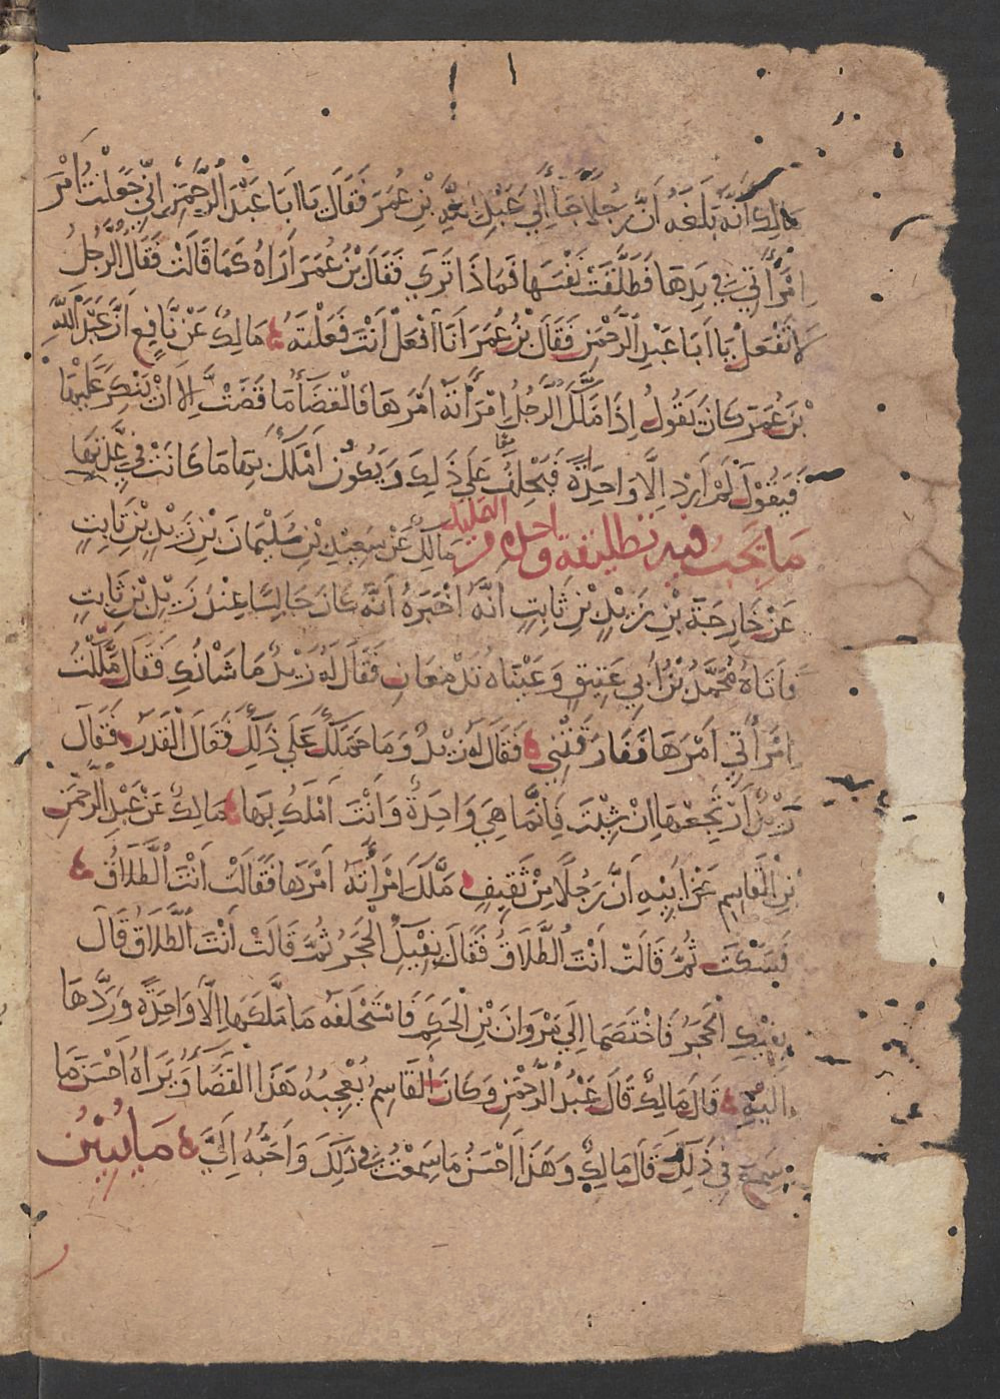 مالك أنه بلغه أن رجلا جاء إلي عبد الله بن عمر فقال يا أبا عبد الرحمن إني جعلت أمر
امرأتي في يدها فطلقت نفسها فماذا تري فقال بن عمر أراه كما قالت فقال الرجل
لا تفعل يا أبا عبد الرحمن فقال بن عمر أنا أفعل أنت فعلته مالك عن نافع أن عبد الله
بن عمر كان يقول إذا ملك الرجل امرأته أمرها فالقضاء ما قضت إلا أن ينكر عليها
فيقول لم أرد إلا واحدة فيحلف علي ذلك ويكون أملك بها ما كانت في عدتها
ما يجب فيه تطليقة واحدة من التمليك مالك عن سعيد بن سليمان بن زيد بن ثابت
عن خارجة بن زيد بن ثابت أنه أخبره أنه كان جالسا عند زيد بن ثابت
فأتاه محمد بن أبي عتيق وعيناه تدمعان فقال له زيد ما شأنك فقال ملكت
امرأتي أمرها ففارقتني فقال له زيد وما حملك علي ذلك فقال القدر فقال
زيد ارتجعها إن شئت فإنما هي واحدة وأنت أملك بها مالك عن عبد الرحمن
بن القاسم عن أبيه أن رجلا من ثقيف ملك امرأته أمرها فقالت أنت الطلاق
فسكت ثم قالت أنت الطلاق فقال بفيك الحجر ثم قالت أنت الطلاق قال
بفيك الحجر فاختصما إلي مروان بن الحكم فاستحلفه ما ملكها إلا واحدة وردها
إليه قال مالك قال عبد الرحمن وكان القاسم يعجبه هذا القضاء ويراه أحسن ما
سمع في ذلك قال مالك وهذا أحسن ما سمعت في ذلك وأحبه إلي ما يبين